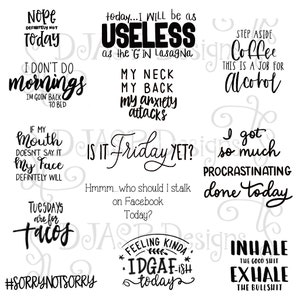 NOPE
DEFINITELY NOT
today
today...I WILL BE as
USELESS
as the "G" IN Lasagna
STEP ASIDE
Coffee
THIS IS A JOB FOR
Alcohol
I DON'T DO
mornings
I'M GOIN' BACK
TO BED
MY NECK
MY BACK
my anxiety
attacks
IF MY
Mouth
DOESN'T SAY IT
My Face
DEFINITELY WILL
IS IT Friday YET?
I got
so much
PROCRASTINATING
done today
Hmmm...who should I stalk
on Facebook
Today?
TUESDAYS
are for
TACOS
FEELING KINDA
IDGAF-ISH
today
INHALE
THE GOOD SHIT
EXHALE
THE BULLSHIT
#SORRYNOTSORRY
DJASDesigns